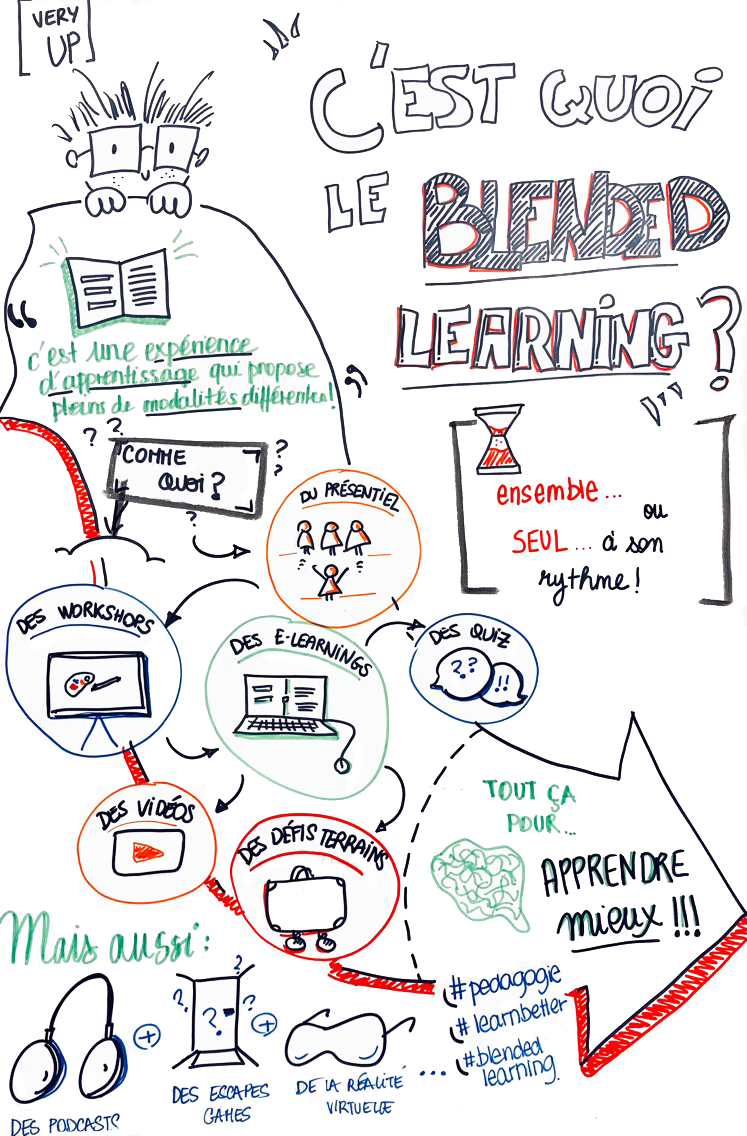 VERY
UP
C'EST QUOI
LE BLENDED
LEARNING ?
“
c'est une expérience
d'apprentissage qui propose
pleins de modalités différentes !
”
? ?
COMME
QUOI ?
?
?
?
ensemble...
ou
SEUL... à son
rythme !
DU PRÉSENTIEL
DES WORKSHOPS
DES E-LEARNINGS
DES QUIZ
? ?
!!
DES VIDÉOS
DES DÉFIS TERRAINS
TOUT ÇA
POUR...
APPRENDRE
mieux !!!
Mais aussi :
+
? ? ? ?
+
DES PODCASTS
DES ESCAPES
GAMES
DE LA RÉALITÉ
VIRTUELLE
...
#pedagogie
#learnbetter
#blended
learning.